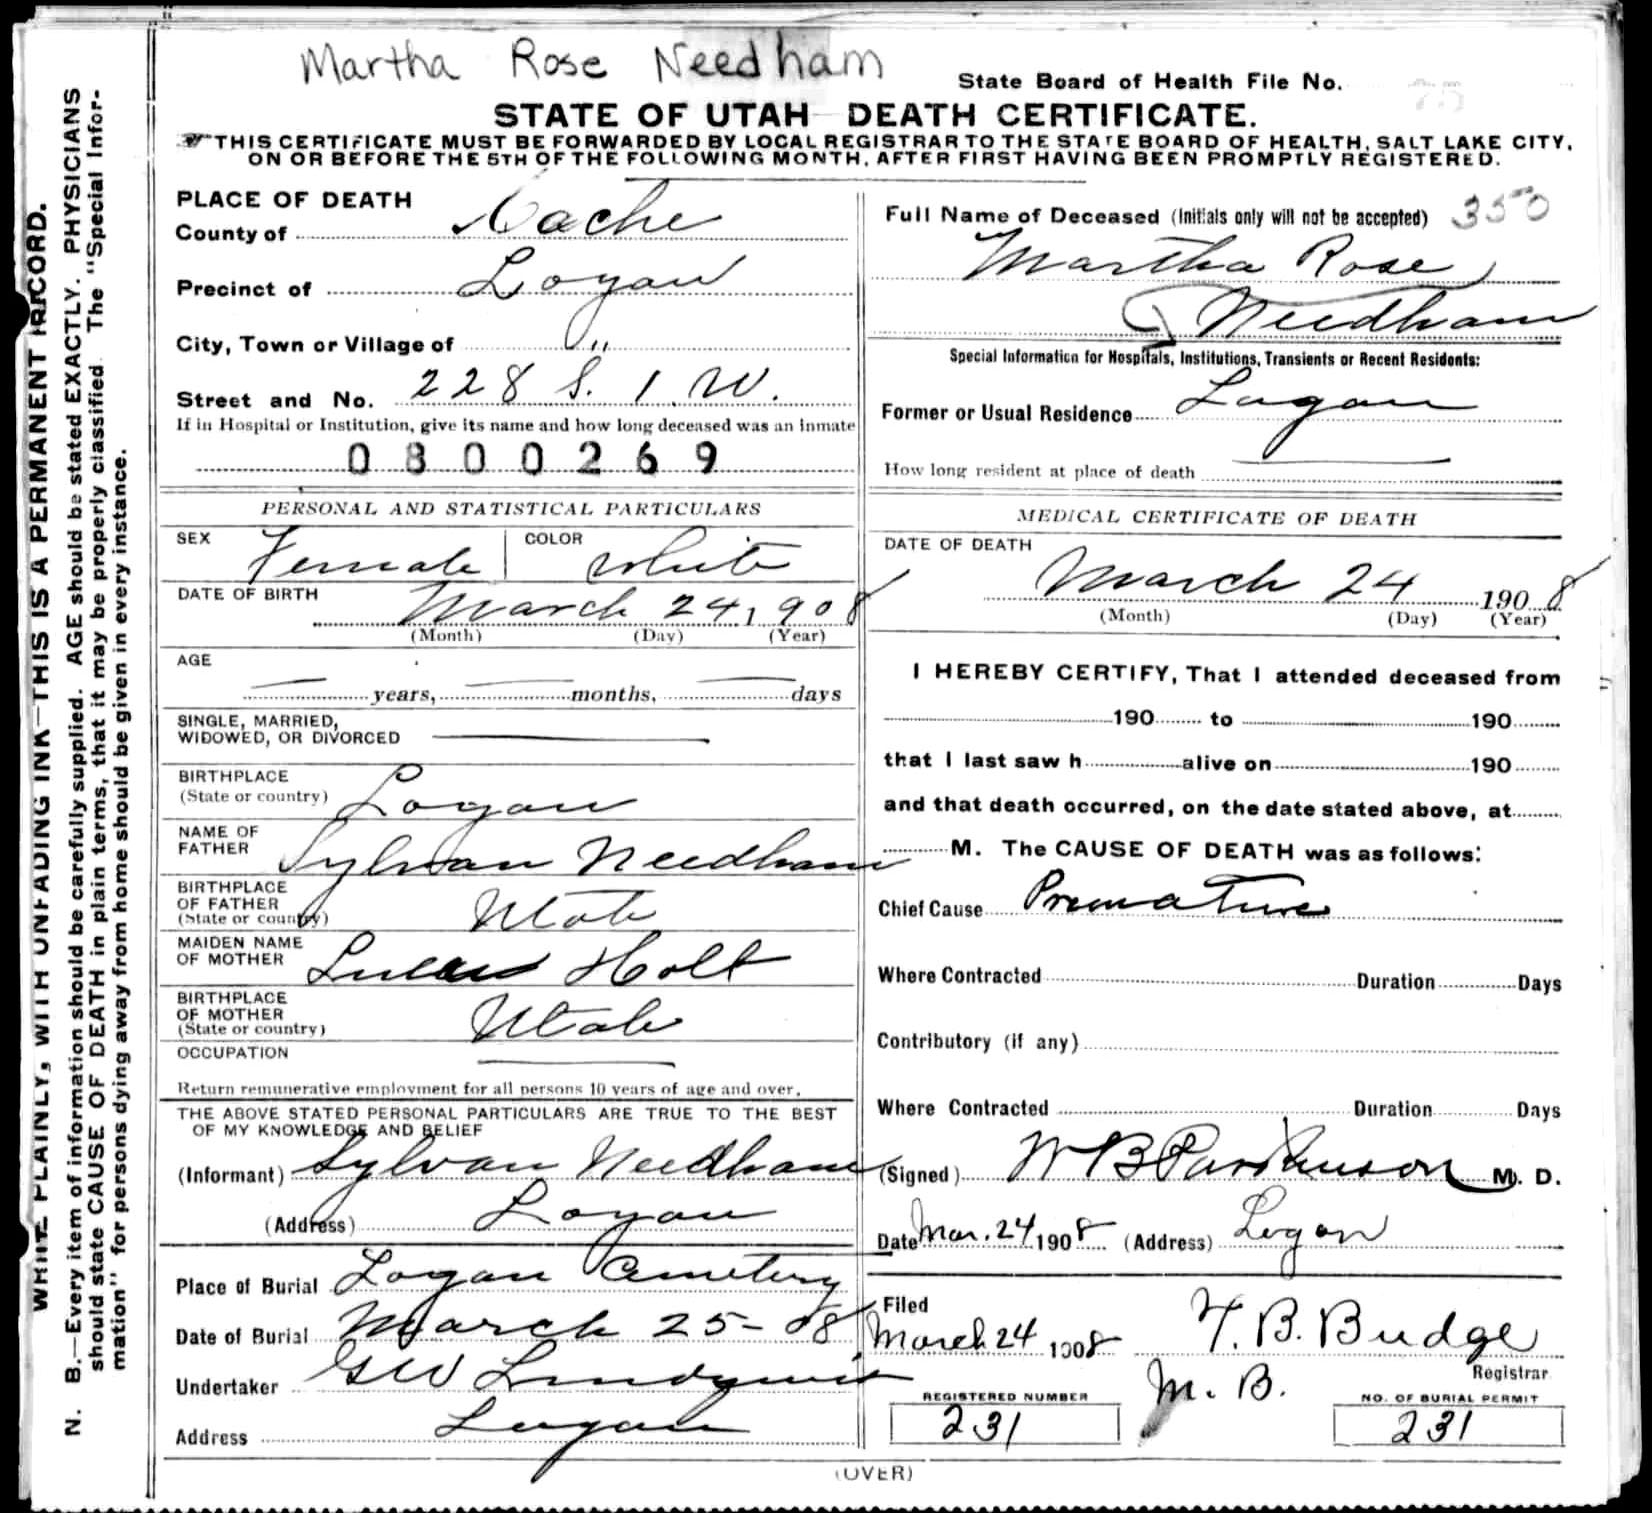 Martha Rose Needham
State Board of Health File No.
STATE OF UTAH DEATH CERTIFICATE.
THIS CERTIFICATE MUST BE FORWARDED BY LOCAL REGISTRAR TO THE STATE BOARD OF HEALTH, SALT LAKE CITY,
ON OR BEFORE THE 5TH OF THE FOLLOWING MONTH, AFTER FIRST HAVING BEEN PROMPTLY REGISTERED.
WRITE PLAINLY, WITH UNFADING INK—THIS IS A PERMANENT RECORD.
N. B.—Every item of information should be carefully supplied. AGE should be stated EXACTLY. PHYSICIANS
should state CAUSE OF DEATH in plain terms, that it may be properly classified. The "Special Infor-
mation" for persons dying away from home should be given in every instance.
PLACE OF DEATH
County of Cache
Precinct of Logan
City, Town or Village of "
Street and No. 228 S. 1. W.
If in Hospital or Institution, give its name and how long deceased was an inmate
0800269
PERSONAL AND STATISTICAL PARTICULARS
SEX Female COLOR White
DATE OF BIRTH March 24, 1908
(Month) (Day) (Year)
AGE
years, months, days
SINGLE, MARRIED,
WIDOWED, OR DIVORCED
BIRTHPLACE
(State or country) Logan
NAME OF
FATHER Sylvan Needham
BIRTHPLACE
OF FATHER
(State or country) Utah
MAIDEN NAME
OF MOTHER Holt
BIRTHPLACE
OF MOTHER
(State or country) Utah
OCCUPATION
Return remunerative employment for all persons 10 years of age and over.
THE ABOVE STATED PERSONAL PARTICULARS ARE TRUE TO THE BEST
OF MY KNOWLEDGE AND BELIEF
(Informant) Sylvan Needham
(Address) Logan
Place of Burial Logan Cemetery
Date of Burial March 25-08
Undertaker GW Lindquist
Address Logan
Full Name of Deceased (Initials only will not be accepted) 350
Martha Rose
Needham
Special Information for Hospitals, Institutions, Transients or Recent Residents:
Former or Usual Residence Logan
How long resident at place of death
MEDICAL CERTIFICATE OF DEATH
DATE OF DEATH
March 24 1908
(Month) (Day) (Year)
I HEREBY CERTIFY, That I attended deceased from
190 to 190
that I last saw h alive on 190
and that death occurred, on the date stated above, at
M. The CAUSE OF DEATH was as follows:
Chief Cause Premature
Where Contracted Duration Days
Contributory (if any)
Where Contracted Duration Days
(Signed) W B Parkinson M. D.
Date Mar. 24 1908 (Address) Logan
Filed
March 24 1908 T. B. Budge
Registrar
M. B.
REGISTERED NUMBER
231
NO. OF BURIAL PERMIT
231
(OVER)